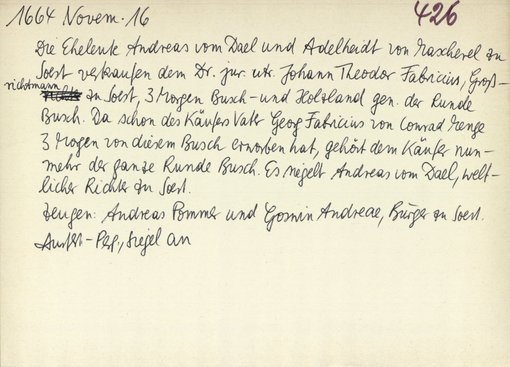 1664 Novem. 16
426
Die Eheleute Andreas vom Dael und Adelheidt von Mascherel zu
Soest verkaufen dem Dr. jur. utr. Johann Theodor Fabricius, Groß-
richtmann zu Soest, 3 Morgen Busch- und Holtland gen. der Runde
Busch. Da schon des Käufers Vater Georg Fabricius von Conrad Menge
3 Morgen von diesem Busch erworben hat, gehört dem Käufer nun-
mehr der ganze Runde Busch. Es siegelt Andreas vom Dael, welt-
licher Richter zu Soest.
Zeugen: Andreas Pommer und Goswin Andreae, Bürger zu Soest.
Ausf.- Perg., Siegel an